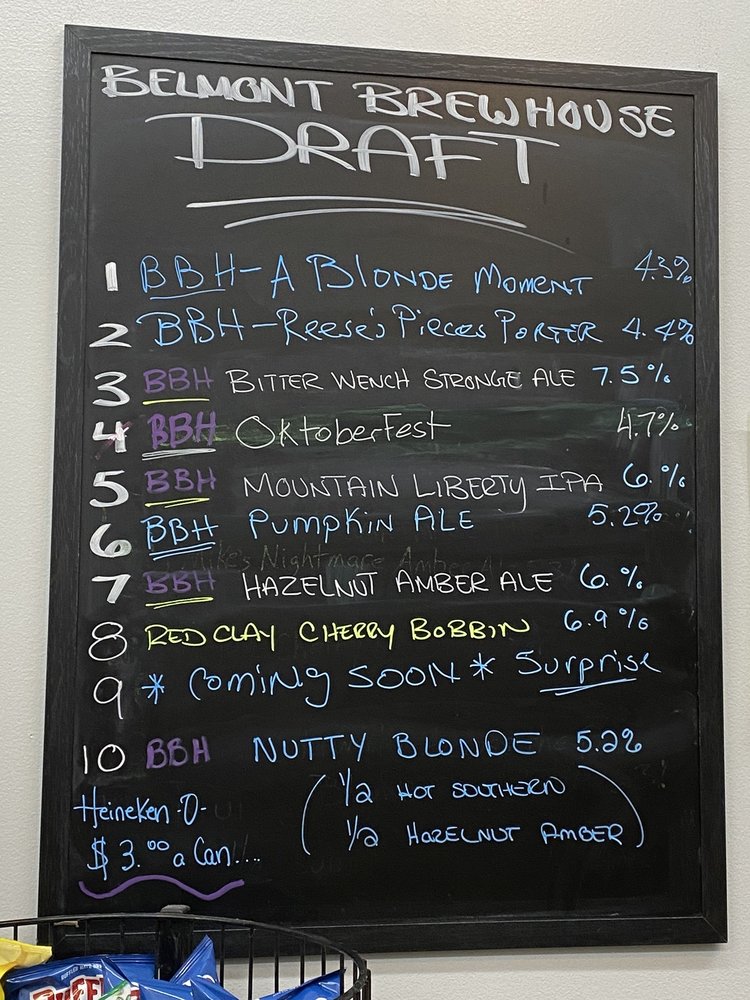 BELMONT BREWHOUSE
DRAFT
1 BBH-A BLONDE MOMENT 4.3%
2 BBH-REESE'S PIECES PORTER 4.4%
3 BBH BITTER WENCH STRONGE ALE 7.5%
4 BBH OKTOBERFEST 4.7%
5 BBH MOUNTAIN LIBERTY IPA 6.%
6 BBH PUMPKIN ALE 5.2%
7 BBH HAZELNUT AMBER ALE 6.%
8 RED CLAY CHERRY BOBBIN 6.9%
9 * COMING SOON * Surprise
10 BBH NUTTY BLONDE 5.2%
(1/2 HOT SOUTHERN
1/2 HAZELNUT AMBER)
Heineken -O-
$3.00 a Can....